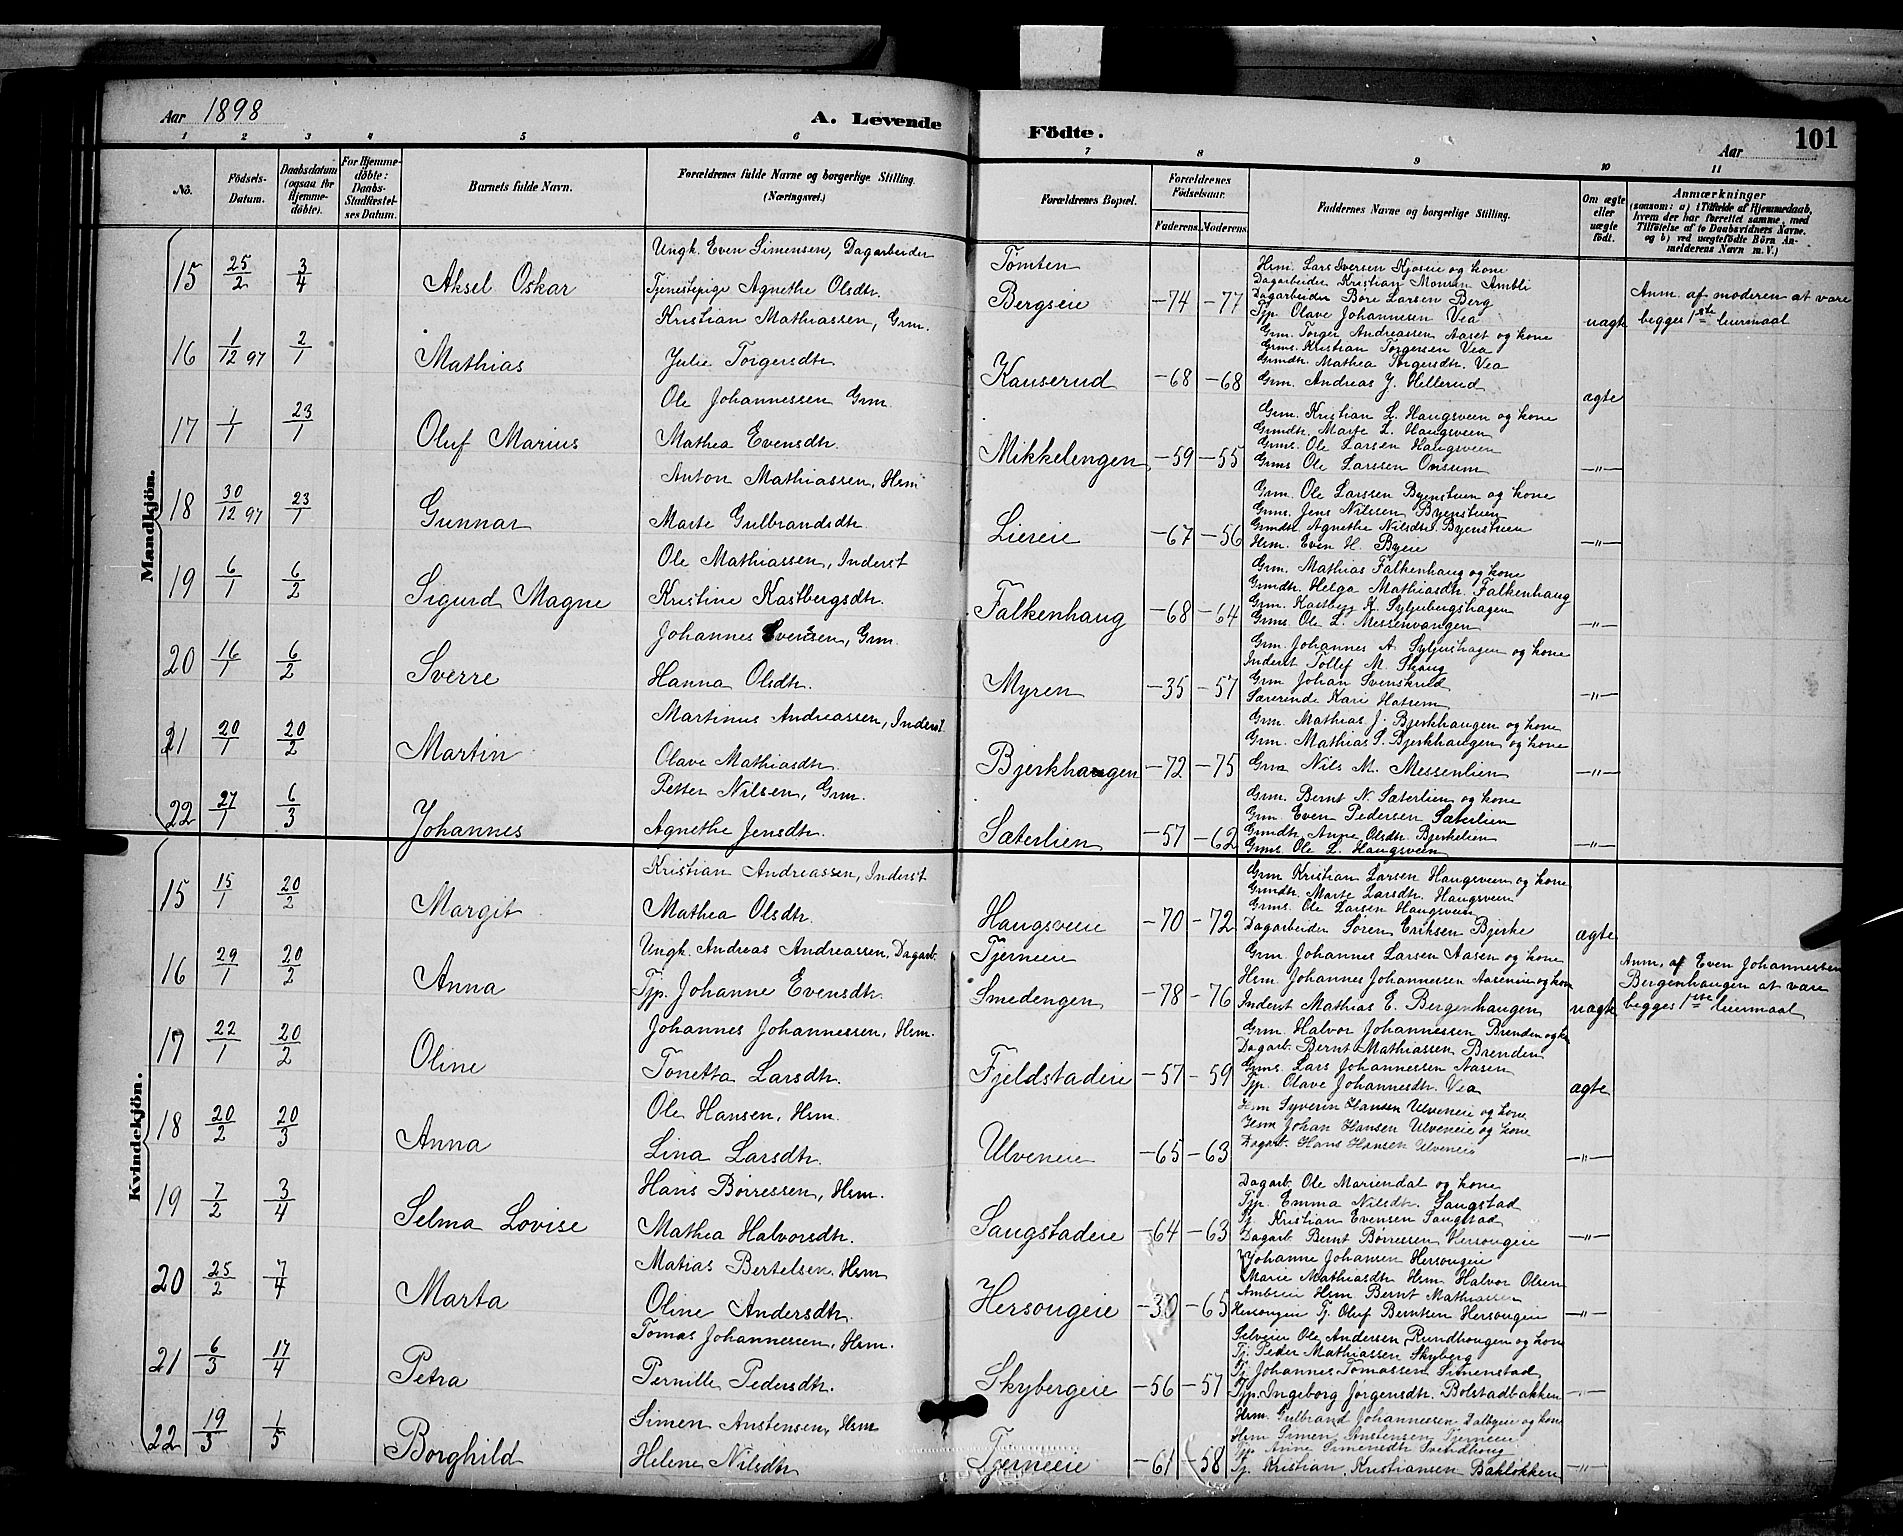 Aar 1898
A. Levende
Födte.
Aar
101
1 2 3 4 5 6 7 8 9 10 11
No.
Födsels-Datum.
Daabsdatum (ogsaa for Hjemme-döbte).
For Hjemme-döbte: Daabs-Stadfæstel-ses Datum.
Barnets fulde Navn.
Forældrenes fulde Navne og borgerlige Stilling. (Næringsvei.)
Forældrenes Bopæl.
Forældrenes Födselsaar.
Faderens. Moderens.
Faddernes Navne og borgerlige Stilling.
Om ægte eller uægte födt.
Anmærkninger
(saasom: a) i Tilfælde af Hjemmedaab, hvem der har forrettet samme, med Tilföielse af to Daabsvidners Navne. og b) ved uægtefödte Börn Anmelderens Navn m. V.)
Mandkjön.
15 25/2 3/4 Aksel Oskar
Ungk. Even Simensen, Dagarbeider
Tjenestepige Agnethe Olsdtr.
Tömten
Bergseie -74 -77
Hsm. Lars Iversen Kjoseie og kone
Dagarbeider Kristian Monsen Ambli
Dagarbeider Bore Larsen Berg
Tjp. Olave Johannesen Vea
uægte
Anm. af moderen at være
begges 1ste leiermaal
16 1/12 97 2/1 Mathias
Kristian Mathiassen, Grm.
Julie Torgersdtr.
Kauserud -68 -68
Grm. Torger Andreassen Aaset og kone
Grms. Kristian Torgersen Vea
Grmdtr. Mathea Torgersdtr. Vea
Grm. Andreas J. Hellerud
ægte
17 1/1 23/1 Oluf Marius
Ole Johannessen Grm.
Mathea Evensdtr.
Mikkelengen -59 -55
Grm. Kristian L. Haugsveen og kone
Grmdtr. Marte L. Haugsveen
Grms. Ole Larsen Haugsveen
Grms Ole Larssen Onsum
-"-
18 30/12 97 23/1 Gunnar
Anton Mathiassen, Hsm
Marte Gulbrandsdtr.
Liereie -67 -56
Grm. Ole Larssen Byenstuen og kone
Grms. Jens Nilssen Byenstuen
Grmdtr. Agnethe Nilsdtr. Byenstuen
Hsm. Even H. Byeie
-"-
19 6/1 6/2 Sigurd Magne
Ole Mathiassen, Inderst
Kristine Kastbergsdtr.
Falkenhaug -68 -64
Grm. Mathias Falkenhaug og kone
Grmdtr. Helga Mathiasdtr. Falkenhaug
Grm. Kastberg K. Syljubergshagen
Grms. Ole L. Messenvangen
-"-
20 16/1 6/2 Sverre
Johannes Svensen, Grm.
Hanna Olsdtr.
Myren -35 -57
Grm. Johannes A. Syljushagen og kone
Inderst Tollef M. Skaug
Grm Johan Svenskrud
Særerinde Kari Hatrem
-"-
21 20/1 20/2 Martin
Martinus Andreassen, Inderst.
Olave Mathiasdtr.
Bjerkhaugen -72 -75
Grm. Mathias J. Bjerkhaugen og kone
Grm. Mathias P. Bjerkhaugen og kone
Grm Nils M. Messenlien
-"-
22 27/1 6/3 Johannes
Petter Nilsen, Grm.
Agnethe Jensdtr.
Sæterlien -57 -62
Grm. Bernt N. Sæterlien og kone
Grm. Even Pedersen Sæterlien
Grmdtr. Anne Olsdtr. Bjerkelien
Grms. Ole L. Haugsveen
-"-
Kvindekjön.
15 15/1 20/2 Margit
Kristian Andreassen, Inderst
Mathea Olsdtr.
Haugsveie -70 -72
Grm Kristian Larsen Haugsveen og kone
Grmdtr. Marte Larsdtr. Haugsveen
Grms. Ole Larsen Haugsveen
Dagarbeider Sören Eriksen Bjerke
ægte
16 29/1 20/2 Anna
Ungk. Andreas Andreassen, Dagarb.
Tjp. Johanne Evensdtr.
Tjerneie
Smedengen -78 -76
Grm. Johannes Larsen Aasen og kone
Hsm. Johannes Johannessen Aaseneie og kone
Inderst Mathias E. Bergenhaugen
uægte
Anm. af Even Johannessen
Bergenhaugen at være
begges 1ste leiermaal
17 22/1 20/2 Oline
Johannes Johannessen, Hsm.
Tonetta Larsdtr.
Fjeldstadeie -57 -59
Grm. Halvor Johannessen Brenden og ko
Dagarb. Bernt Mathiassen Brenden
Grms. Lars Johannessen Aasen
Tjp. Olave Johannesdtr. Vea
ægte
18 20/2 20/3 Anna
Ole Hansen, Hsm.
Lina Larsdtr.
Ulveneie -65 -63
Hsm Syverin Hansen Ulveneie og kone
Hsm Johan Hansen Ulveneie og kone
Dagarb. Hans Hansen Ulveneie
-"-
19 7/2 3/4 Selma Lovise
Hans Börressen, Hsm.
Mathea Halvorsdtr.
Saugstadeie -64 -63
Dagarb. Ole Mariendal og kone
Tjp. Emma Nilsdtr. Saugstad
Tj. Kristian Evensen Saugstad
Dagarb Bernt Börresen Hersougeie
-"-
20 25/2 7/4 Marta
Matias Bertelsen Hsm
Oline Andersdtr.
Hersougeie -30 -65
Johanne Johansen Hersougeie
Marie Mathiasdtr Hsm Halvor Olsen
Ambleie Hsm Bernt Mathiassen
Hersougeie Tj. Oluf Berntsen Hersougeie
-"-
21 6/3 17/4 Petra
Tomas Johannessen, Hsm.
Pernille Pedersdtr.
Skybergeie -56 -57
Selveier Ole Andersen Rundhougen og kone
Tj. Peder Mathiassen Skyberg
Tj. Johannes Tomassen Simenstad
Tjp. Ingeborg Jörgensdtr. Bolstadbakken
-"-
22 19/3 1/5 Borghild
Simen Anstensen, Hsm
Helene Nilsdtr
Tjerneeie -61 -58
Hsm. Gulbrand Johannessen Dalbyeie og kone
Hsm Simen Anstensen Tjerneeie
Tjp Anne Simensdtr Svendhoug
Tj. Kristian Kristiansen Baklökken
-"-